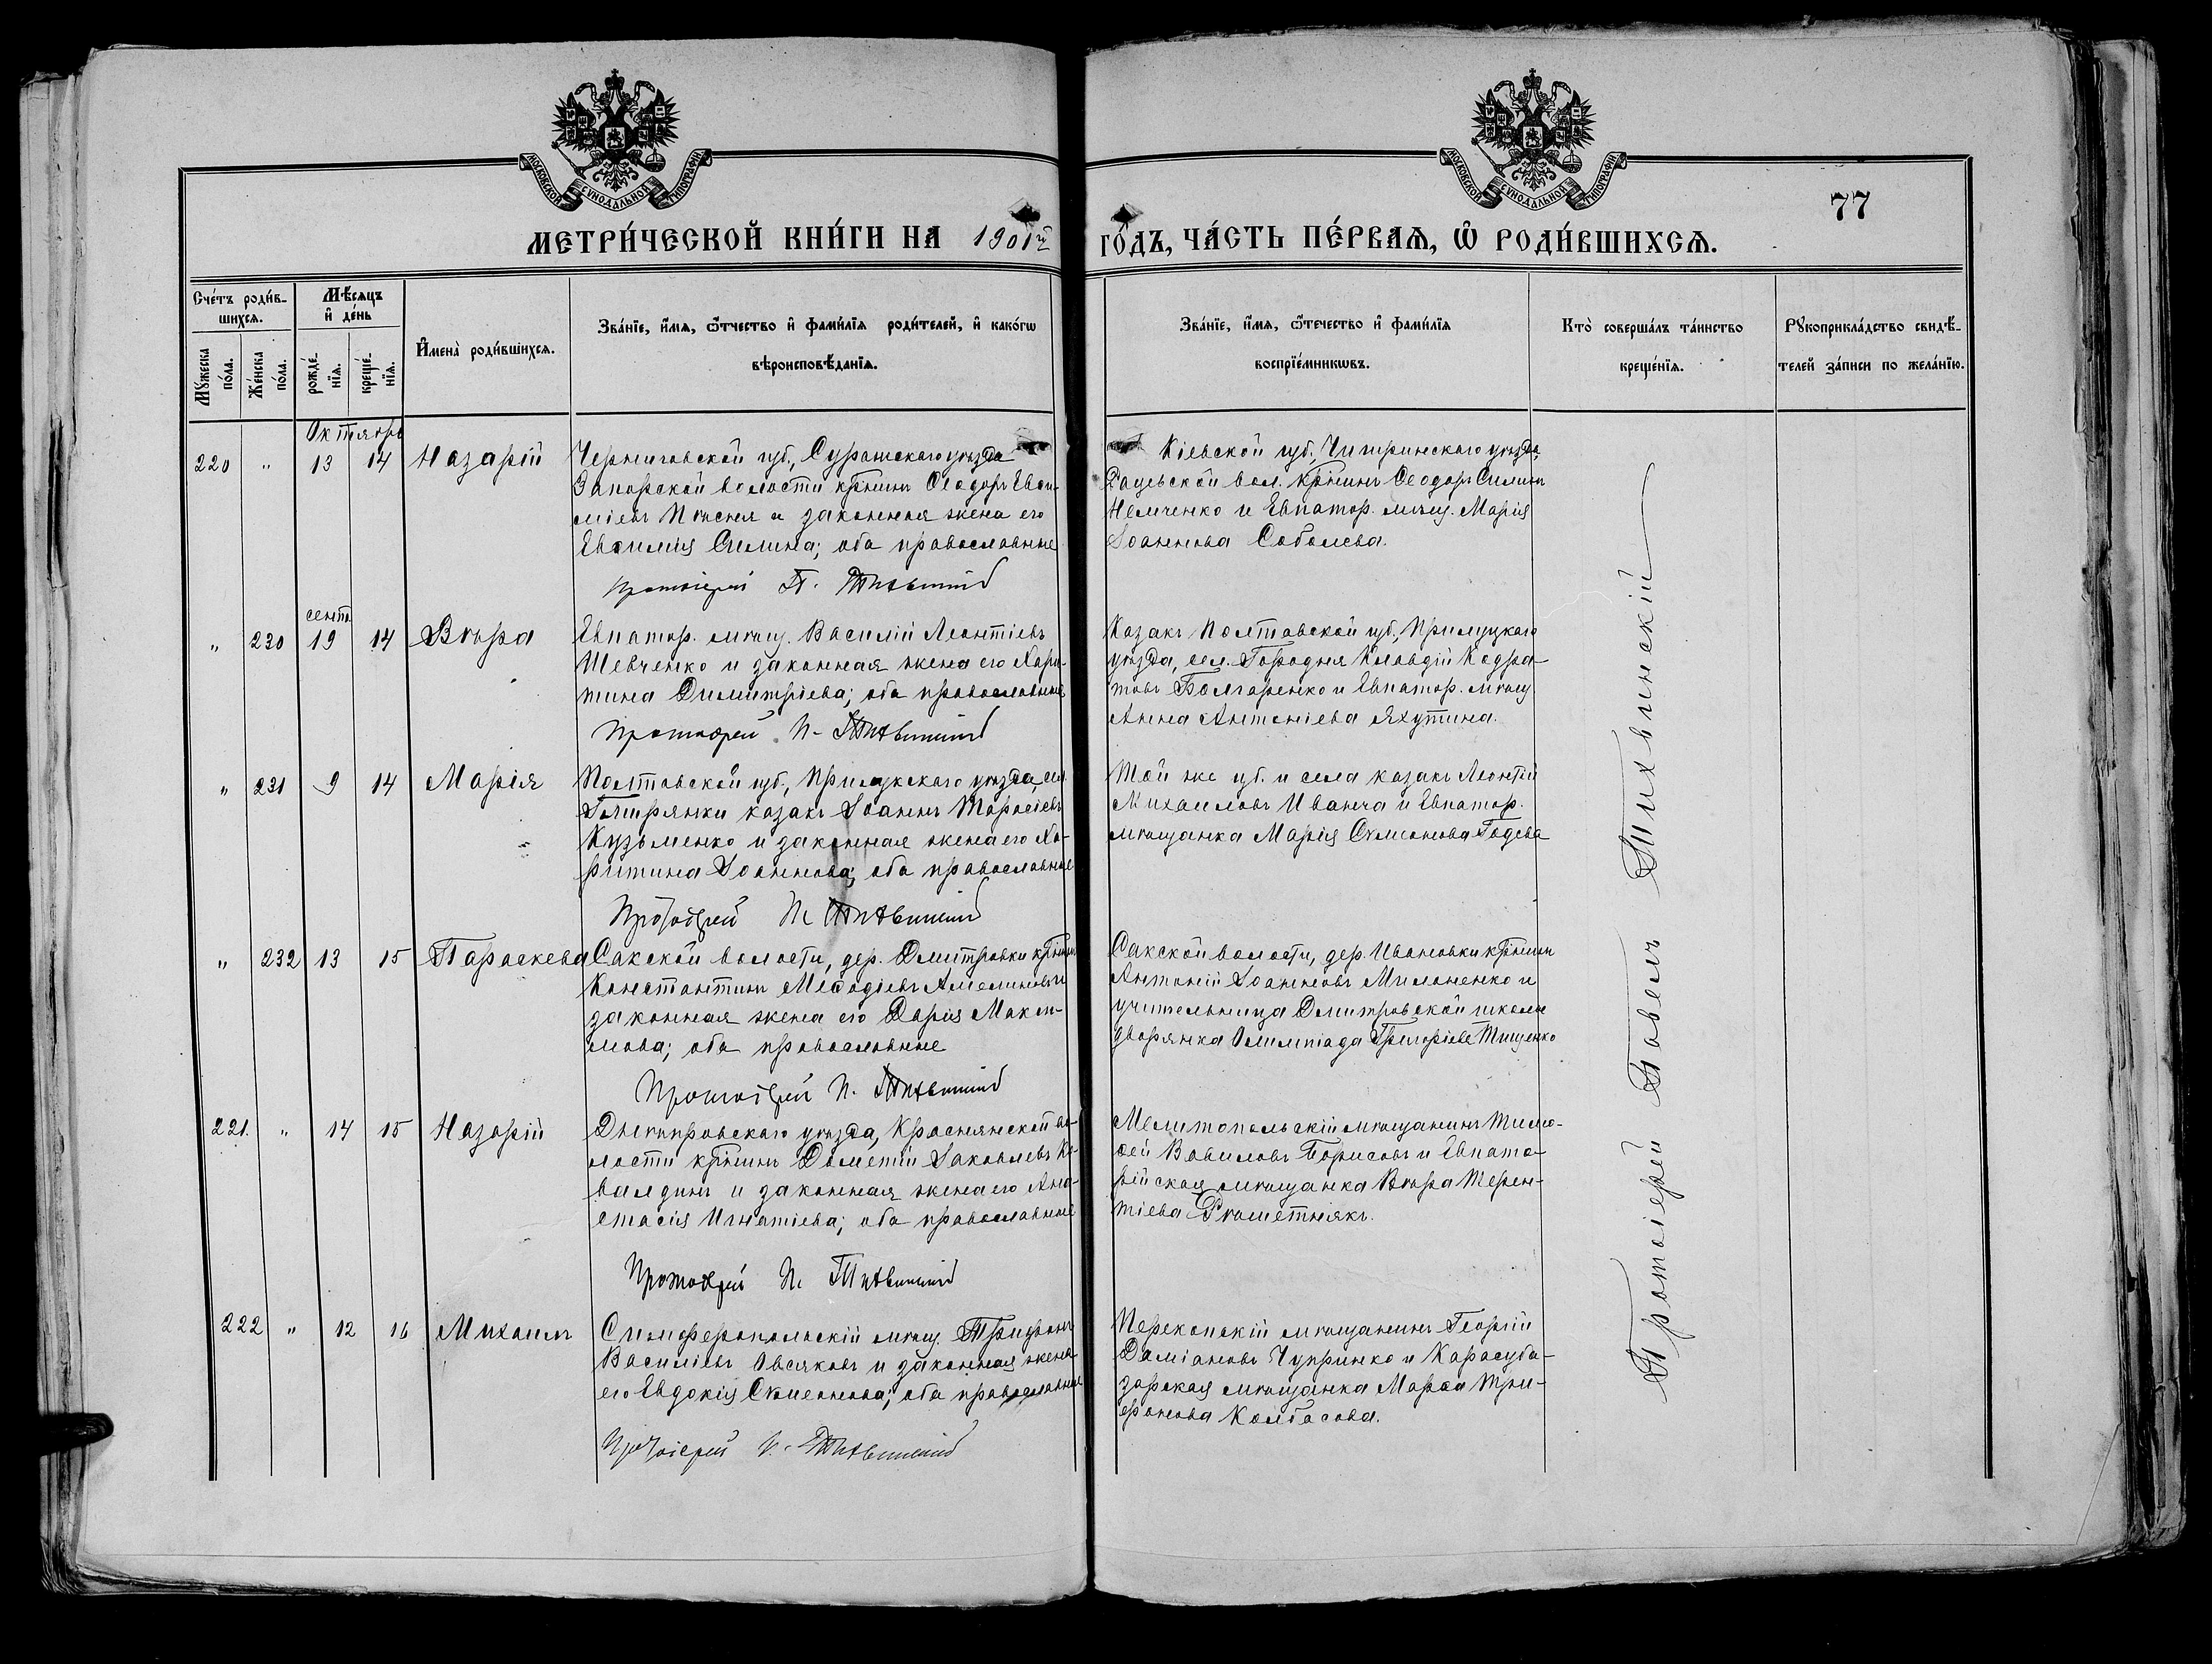 МОСКОВСКОЙ СѴНОДАЛЬНОЙ ТИПОГРАФІИ
МОСКОВСКОЙ СѴНОДАЛЬНОЙ ТИПОГРАФІИ
77
МЕТРИ́ЧЕСКОЙ КНИ́ГИ НА 1901й
ГО́ДЪ, ЧА́СТЬ ПЕ́РВАѦ, Ѡ҆ РОДИ́ВШИХСѦ.
Сче́тъ роди́в-
шихсѧ.
Мѣ́сѧцъ
и҆ де́нь
Мꙋ́жеска
по́ла.
Же́нска
по́ла.
рожде́-
нїѧ.
креще́-
нїѧ.
И҆мена̀ роди́вшихсѧ.
Зва́нїе, и҆́мѧ, ѻ҆́тчество и҆ фами́лїѧ роди́телей, и҆ како́гѡ
вѣроисповѣ́данїѧ.
Зва́нїе, и҆́мѧ, ѻ҆́течество и҆ фами́лїѧ
воспрїе́мникѡвъ.
Кто̀ соверша́лъ та́инство
креще́нїѧ.
Рꙋкоприкла́дство свидѣ́-
телей за́писи по жела́нїю.
Октябрь
220 " 13 14 Назарій
Черниговской губ., Суражскаго уѣзда
волости крѣнинъ Ѳеодоръ Евѳи-
міевъ и законная жена его
Евѳимія Силина; оба православные
Протоіерей П. Тихвинскій
Кіевской губ., Чигринскаго уѣзда,
вол. крѣнинъ Ѳеодоръ Силинъ
Немченко и Евпатор. мѣщ. Марія
Іоаннова Соболева.
сент.
" 230 19 14 Вѣра
Евпатор. мѣщ. Василій Леонтіевъ
Шевченко и законная жена его Хари-
тина Димитріева; оба православные
Протоіерей П. Тихвинскій
Казакъ Полтавской губ., Прилуцкаго
уѣзда, сел. Городня Клавдій Кодра-
товъ Болгаренко и Евпатор. мѣщ.
Анна Антоніева Яхутина.
" 231 9 14 Марія
Полтавской губ., Прилукскаго уѣзда, сел.
казакъ Іоаннъ Тарасіевъ
Кузьменко и законная жена его Ха-
ритина Іоаннова; оба православные
Протоіерей П. Тихвинскій
Той же губ. и села казакъ Леонтій
Михаиловъ Иванча и Евпатор.
мѣщанка Марія Симеонова Годева
" 232 13 15 Параскева
Сакской волости, дер. Дмитровки крѣнин.
Константинъ Меѳодіевъ Амелинъ и
законная жена его Дарія Макси-
мова; оба православные
Протоіерей П. Тихвинскій
Сакской волости, дер. Ивановки крѣнинъ
Антоній Іоанновъ Милоненко и
учительница Дмитровской школы
дворянка Олимпіада Григоріева Тищенко
221. " 14 15 Назарій
Днѣпровскаго уѣзда, Краснянской во-
лости крѣнинъ Дометій Іаковлевъ Ко-
валдинъ и законная жена его Ана-
стасія Игнатіева; оба православные
Протоіерей П. Тихвинскій
Мелитопольскій мѣщанинъ Тимо-
ѳей Вавиловъ Борисовъ и Евпато-
рійская мѣщанка Вѣра Терен-
тіева Рѣшетнякъ.
222 " 12 16 Михаилъ
Симферопольскій мѣщ. Трифонъ
Василіевъ Овсяковъ и законная жена
его Евдокія Симеонова; оба православные
Протоіерей П. Тихвинскій
Перекопскій мѣщанинъ Георгій
Даміановъ Чупринко и Карасуба-
зарская мѣщанка Марѳа Три-
фонова Колбасова.
Протоіерей Павелъ Тихвинскій